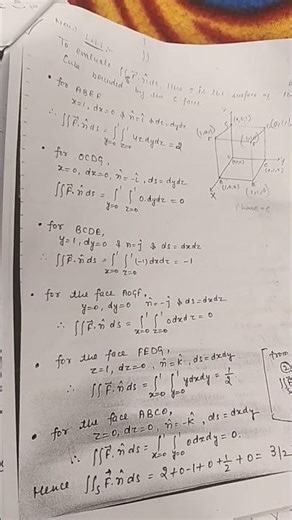 Now L.H.S :-
To evaluate ∬ F̄.n̂ ds, where S is the surface of the
Cube bounded by the 6 faces
• for ABEF
x=1, dx=0 & n̂=î & ds=dydz
∴ ∬F̄.n̂ds = ∫¹y=0 ∫¹z=0 4z dydz = 2
• for OCDG,
x=0, dx=0, n̂=-î, ds=dydz
∴ ∬F̄.n̂ ds = ∫¹y=0 ∫¹z=0 0.dydz = 0
• for BCDE,
y=1, dy=0 & n̂=ĵ & ds=dxdz
∴ ∬F̄.n̂ ds = ∫¹x=0 ∫¹z=0 (-1)dxdz = -1
• for the face AOGF,
y=0, dy=0 n̂=-ĵ & ds=dxdz
∴ ∬F̄.n̂ ds = ∫¹x=0 ∫¹z=0 0dxdz = 0
• for the face FEDG,
z=1, dz=0, n̂=k̂, ds=dxdy
∴ ∬F̄.n̂ ds = ∫¹x=0 ∫¹y=0 ydxdy = 1/2
• for the face ABCO,
z=0, dz=0, n̂=-k̂, ds=dxdy
∴ ∬F̄.n̂ ds = ∫¹x=0 ∫¹y=0 0dxdy = 0.
Hence ∬s F̄.n̂ ds = 2+0-1+0+1/2+0 = 3/2
from